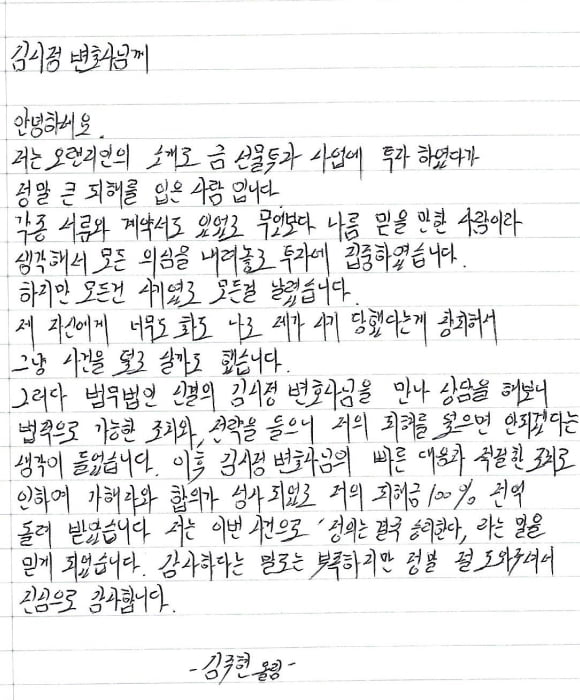 김시정 변호사님께
안녕하세요.
저는 오랜지인의 소개로 금 선물투자 사업에 투자 하였다가
정말 큰 피해를 입은 사람 입니다.
각종 서류와 계약서도 있었고 무엇보다 나름 믿을 만한 사람이라
생각해서 모든 의심을 내려놓고 투자에 집중하였습니다.
하지만 모든건 사기였고 모든걸 날렸습니다.
제 자신에게 너무도 화도 나고 제가 사기 당했다는게 창피해서
그냥 사건을 덮고 살까도 했습니다.
그러다 법무법인 신결의 김시정 변호사님을 만나 상담을 해보니
법적으로 가능한 조치와, 전략을 들으니 저의 피해를 덮으면 안되겠다는
생각이 들었습니다. 이후 김시정 변호사님의 빠른 대응과 적절한 조치로
인하여 가해자와 합의가 성사되었고 저의 피해금 100% 전액
돌려 받았습니다 저는 이번 사건으로 '정의는 결국 승리한다, 라는 말을
믿게 되었습니다. 감사하다는 말로는 부족하지만 정말 절 도와주셔서
진심으로 감사합니다.
- 김주현 올림 -